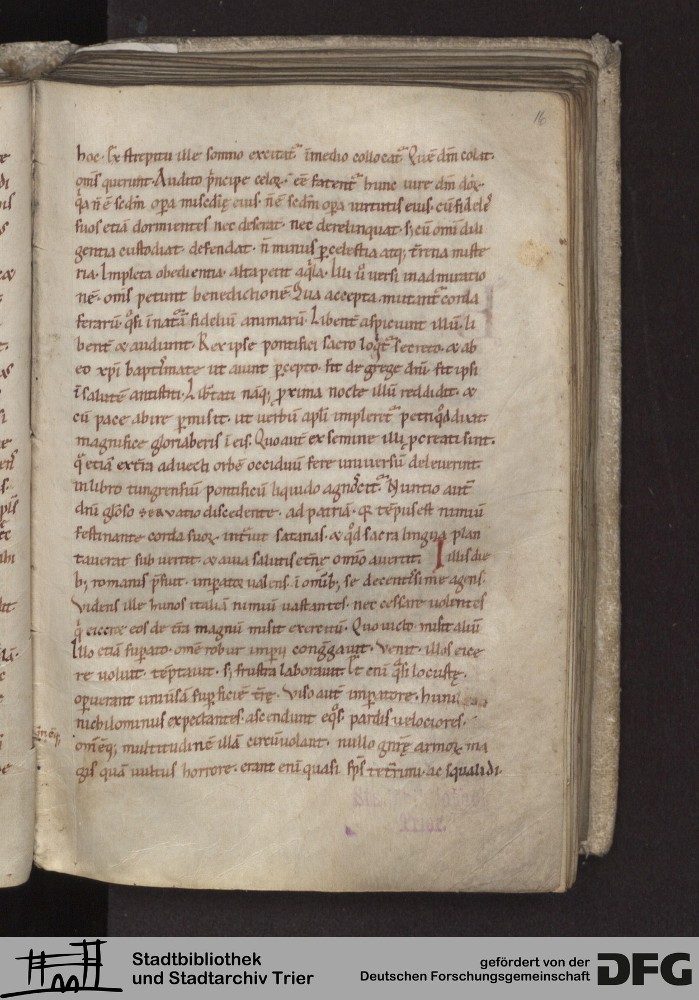 16
hoc. Ex strepitu ille somno excitatr̄ īmedio collocatr̄. Quē dm̄ colat.
oms̄ querunt. Audito p̄ncipe celoꝝ. eē fatentr̄ hunc uire dm̄
q̄a n̄ ē scdm̄ opa miscd̄ie eius. n̄ ē scdm̄ opa uirtutis eius. cū fideleˢ
suos etiā dormientes nec deserat. nec derelinquat. sꝫ cū omi dili
gentia custodiat. defendat. n̄ minus ꝑcelestia atqꝫ tr̄rena miste
ria. Impleta obedientia. alta petit aqͥla. Illi ū uersi in admiratio
nē. oms̄ petunt benedictionē. Qua accepta. mutantr̄ corda
ferarū. qͣsi ī natͣā fideliū animarū. Libent̄ aspiciunt illū. li
bent̄ ⁊ audiunt. Rex ipse pontifici sacro loqͥtr̄ secreto. ⁊ ab
eo xp̄i baptismate ut aiunt ꝑcepto. fit de grege dn̄i. fit ipsi
ī salutē antistiti. Lib̄tati naqꝫ ꝓxima nocte illū reddidit. ⁊
cū pace abire ꝑmisit. ut uerbū apl̄i impleretr̄ petri qͦd aiat.
magnifice gloriaberis ī eis. Quo aut̄ ex semine illiꝰ pcreati sint.
qͥ etiā extͣa aduecti orbē occiduū fere uniuersū deleuerint.
in libro tungrensiū pontificū liquido agnoscitr̄. Nuntio aut̄
dn̄i gl̄oso seruatio discedente. ad patriā. qꝛ tēpus est nimiū
festinante corda suoꝝ. intͣuit satanas. ⁊ qͦd sacra lingua plan
tauerat subuertit. ⁊ a uia salutis etn̄e om̄ino auertit. Illis die
bꝫ romanis p̄fuit. imperator ualens. ī omibꝫ se decentissime agens.
Videns ille hunos italiā nimiū uastantes. nec cessare uolentes
qͥ eicere eos de tr̄a magnū misit exercitū. Quo uicto. misit aliū
Illo etiā supato. omē robur imperii congͣgauit. Venit. illos eice
re uoluit. tēptauit. sꝫ frustra laborauit. Et enī qͣsi locustę.
opuerant uniūsā supficiē tr̄ę. Viso aut̄ inpatore. huni
nichilominus expectantes. ascendunt eqͦs. pardis uelociores.
omēqꝫ multitudinē illā circūuolant. nullo gn̄re armoꝝ. ma
gis quā uultus horrore. erant enī quasi sp̄s teterrimi. ac squalidi.
Trier.
Stadtbibliothek
und Stadtarchiv Trier
gefördert von der
Deutschen Forschungsgemeinschaft
DFG